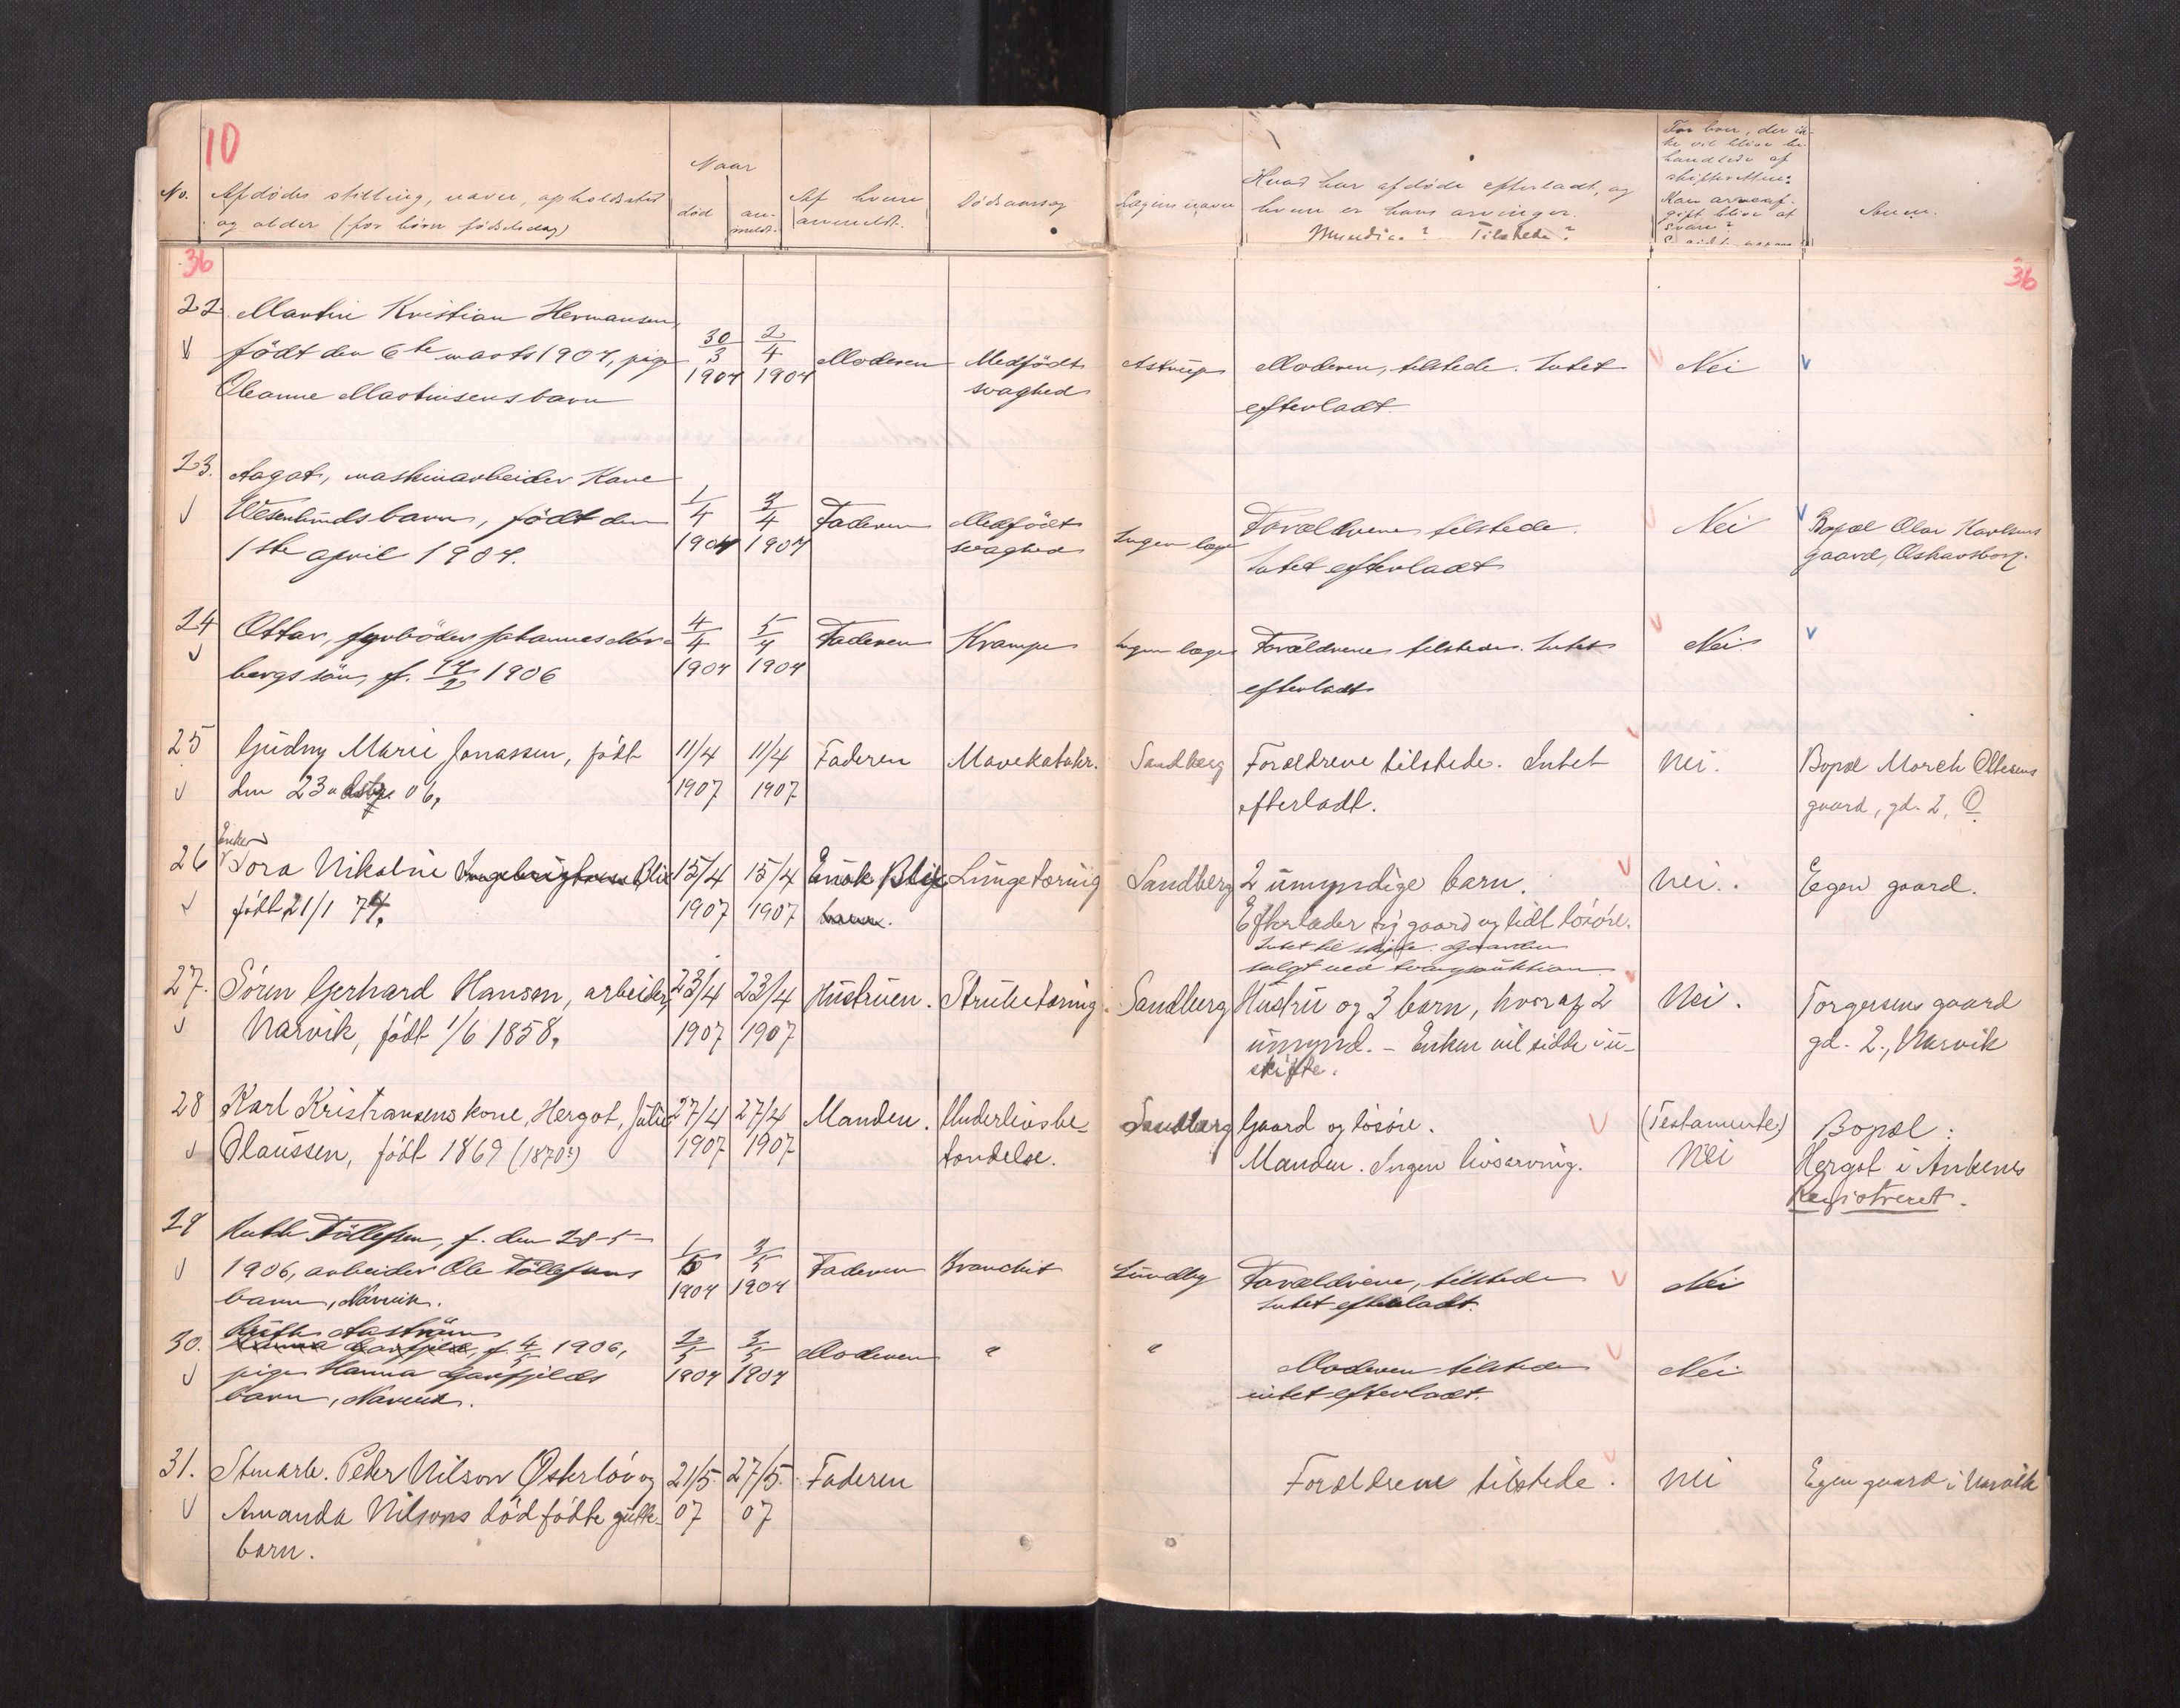 10
No.
Afdødes stilling, navn, opholdssted
og alder (for børn fødselsdag)
Naar
død
an-
meldt.
Af hvem
anmeldt.
Dødsaarsag
Lægens navn
Hvad har afdøde efterladt, og
hvem er hans arvinger.
Myndige? Tilstede?
For boer, der ik-
ke vil blive be-
handlede af
skifteretten:
Kan arveaf-
gift blive at
svare?
Anm.
36
36
22. Martin Kristian Hermansen,
født den 6te marts 1907, pige
Oleanne Martinsens barn
30/3 1907
2/4 1907
Moderen
Medfødt
svaghed
Astrup
Moderen, tilstede. Intet
efterladt.
Nei
23. Aagot, maskinarbeider Kare
Wesenlunds barn, født den
1ste april 1907.
1/4 1907
3/4 1907
Faderen
Medfødt
svaghed
Ingen læge
Forældrene tilstede.
Intet efterladt
Nei
Bopæl Olav Karlsens
gaard, Oskarsborg.
24 Ottar, fyrbøder Johannes Nor-
bergs søn, f. 1906
4/4 1907
5/4 1907
Faderen
Krampe
Ingen læge
Forældrene tilstede. Intet
efterladt
Nei
25 Gudny Marie Jonassen, født
den 23 06.
11/4 1907
11/4 1907
Faderen
Mavekatarr.
Sandberg
Forældrene tilstede. Intet
efterladt.
Nei.
Bopæl Morch Ottesens
gaard, gd. 2, O
Enke
26 Dora Nikoline Ingebrigtsen Blix
født 21/1 74.
15/4 1907
15/4 1907
Enok Blix
Lungetæring
Sandberg
2 umyndige barn.
Efterlader sig gaard og lidt løsøre.
Intet til skifte. Gaarden
solgt ved tvangsauktion.
Nei.
Egen gaard.
27. Søren Gerhard Hansen, arbeider,
Narvik, født 1/6 1858.
23/4 1907
23/4 1907
Hustruen.
Strubetæring.
Sandberg
Hustru og 3 barn, hvoraf 2
umynd. - Enken vil sidde i u-
skifte.
Nei.
Torgersens gaard
gd. 2., Narvik
28 Karl Kristiansens kone, Hergot, Julie
Olaussen, født 1869 (1870?)
27/4 1907
27/4 1907
Manden.
Underlivsbe-
tændelse.
Sandberg
Gaard og løsøre.
Manden. Ingen livsarving.
(Testamente)
Nei
Bopæl:
Hergot i Ankenes
Registreret.
29 Ruth Tøllefsen, f. den 28-5-
1906, arbeider Ole Tøllefsens
barn, Narvik.
1/5 1907
3/5 1907
Faderen
Bronchit
Lundby
Forældrene, tilstede
Intet efterladt.
Nei
Ruth Aastrøm
30. f. 4/5 1906,
pige Hanna Garfjelds
barn, Narvik.
2/5 1907
3/5 1907
Moderen
"
"
Moderen tilstede
intet efterladt.
Nei
31. Stenarb. Peter Nilson Østerløv og
Amanda Nilsons død fødte gutte-
barn.
21/5 07
27/5 07
Faderen
Forældrene tilstede.
Nei
Egen gaard i Narvik